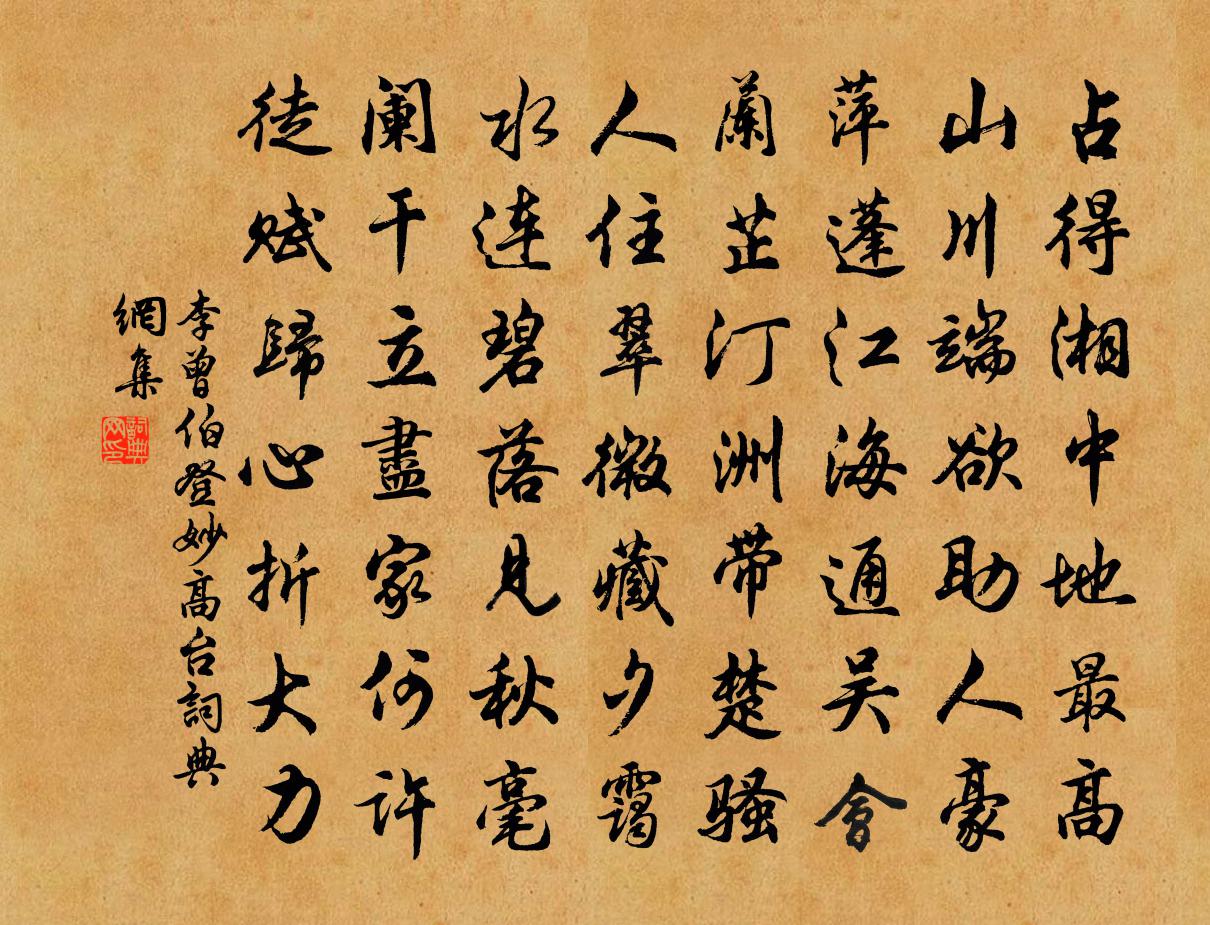 占得湘中地最高
山川端欲助人豪
萍蓬江海通吴會
蘭芷汀洲带楚骚
人住翠微藏夕靄
水连碧落見秋毫
阑干立盡家何許
徒赋歸心折大刀
李曾伯登妙高台詞典
網集
詞典网印